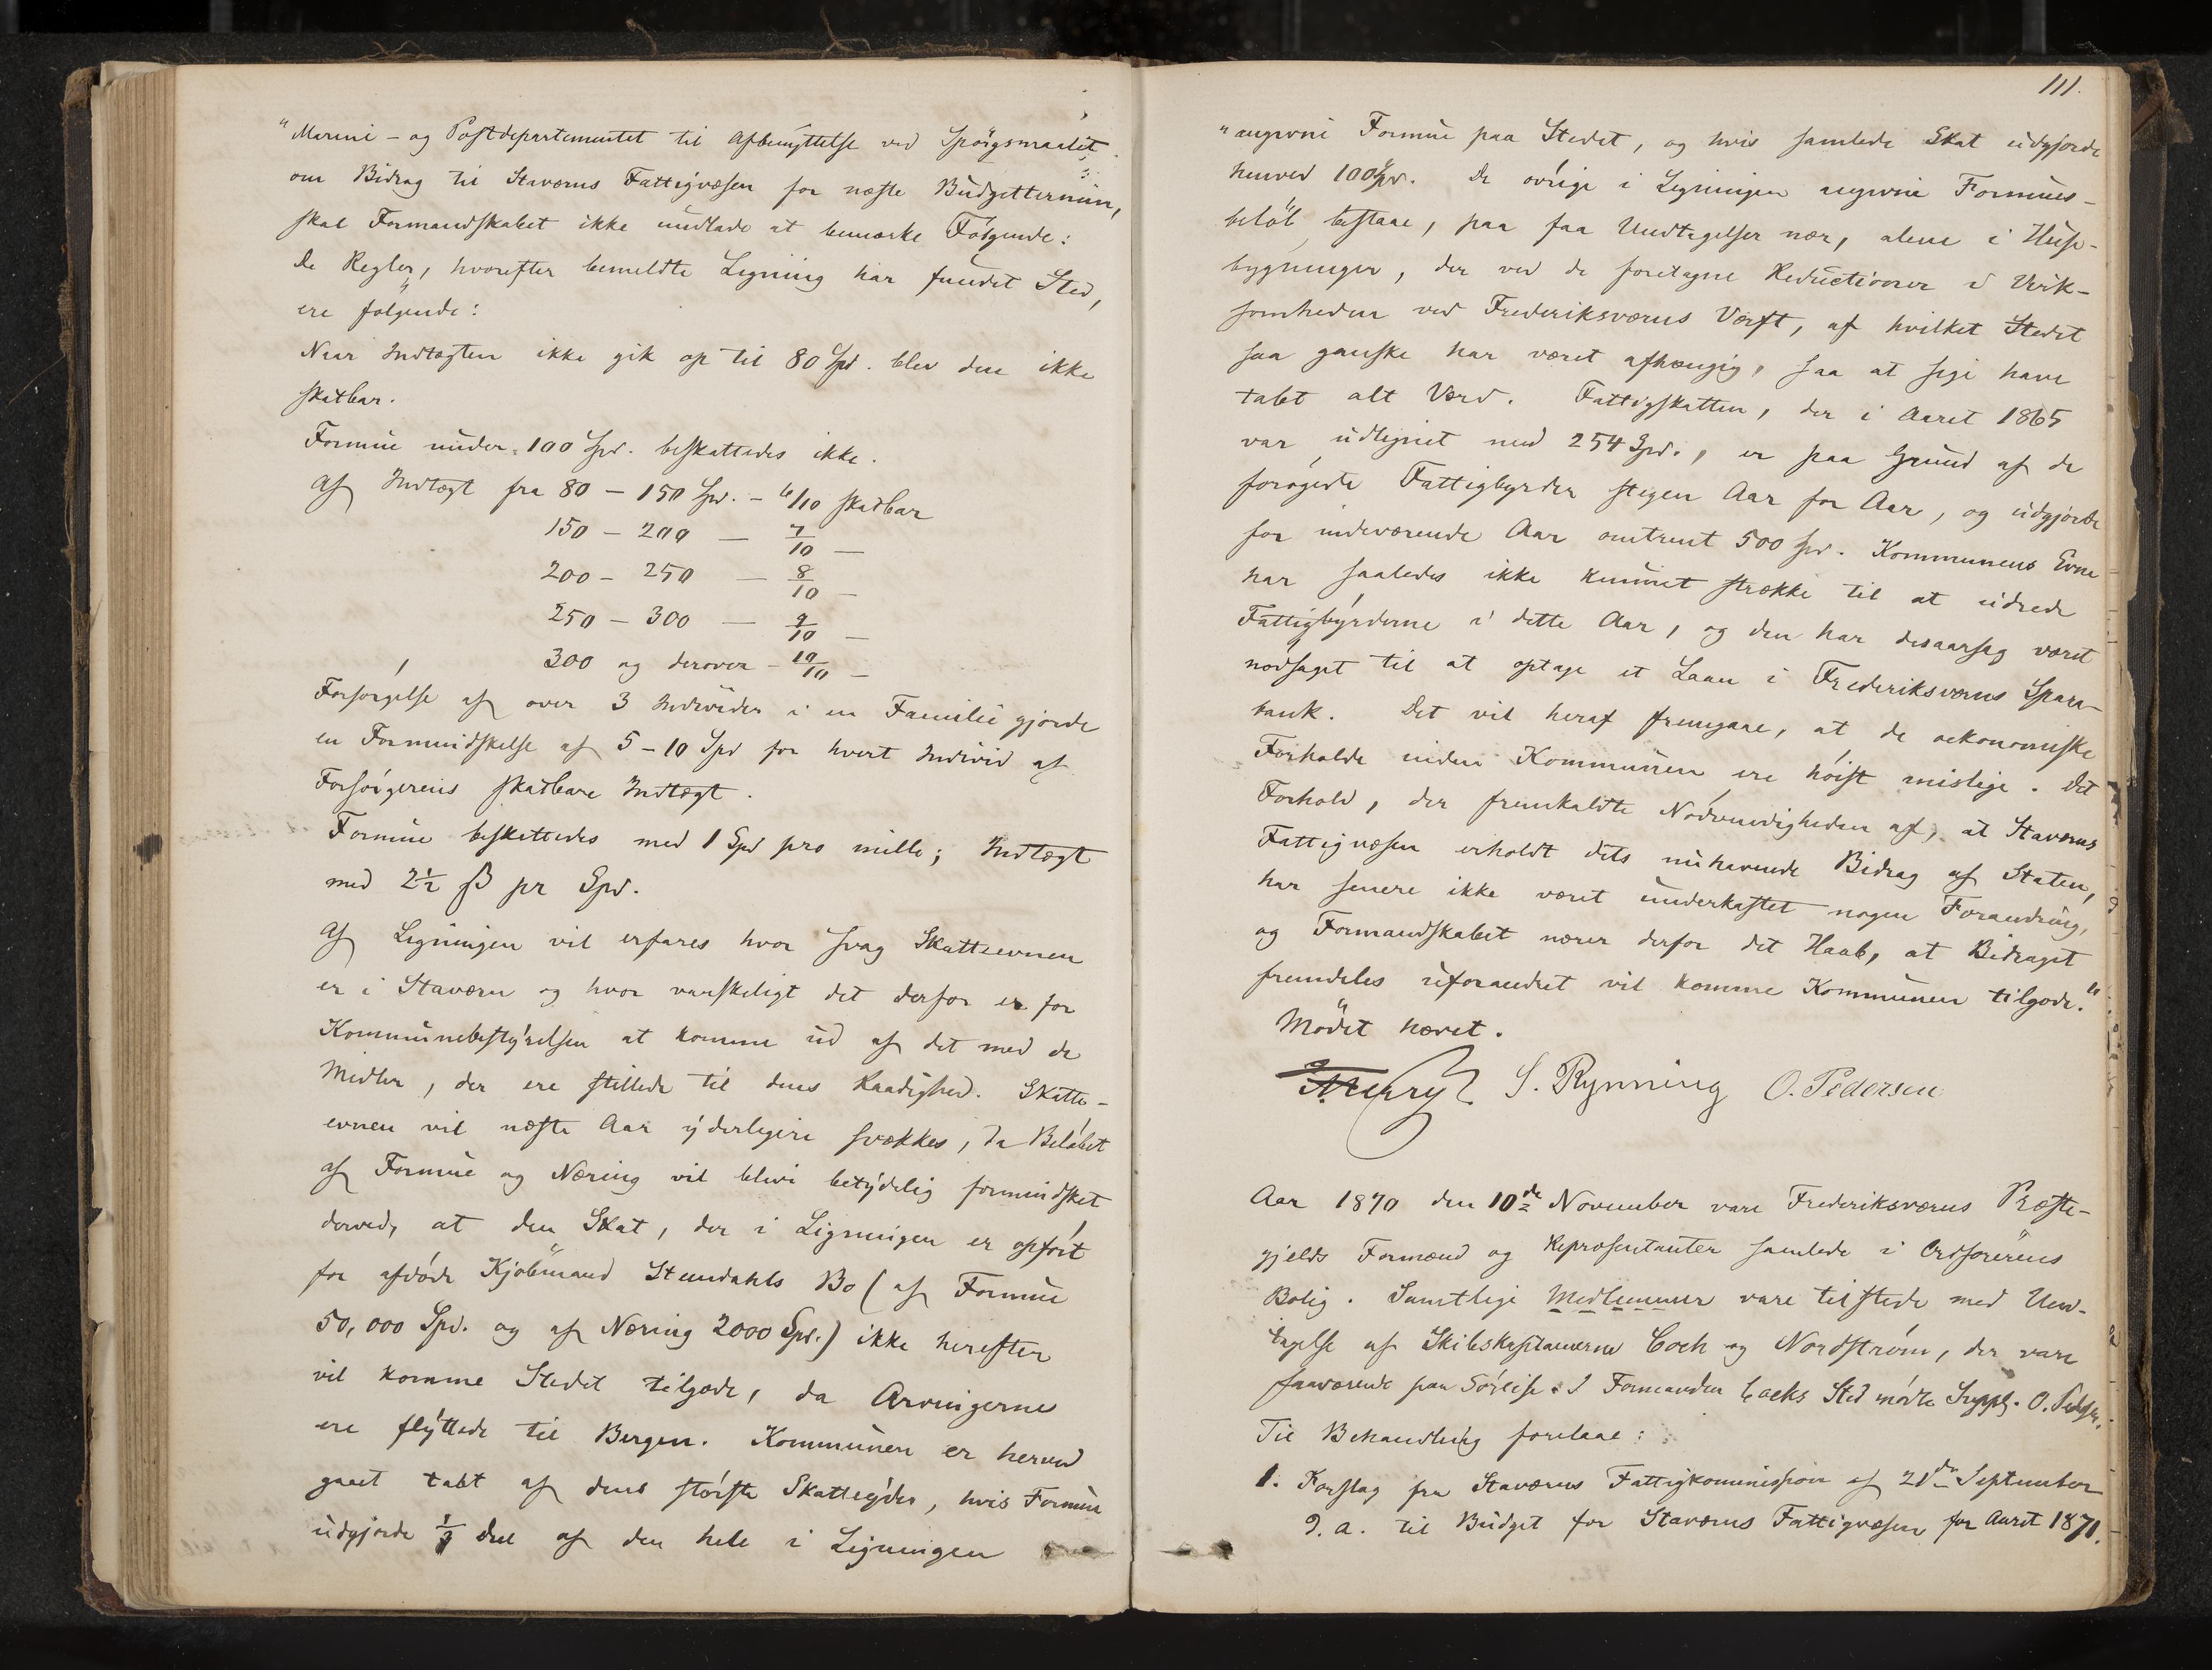 "Marine- og Postdepartementet til Afbenyttelse ved Spörgsmaalet
om Bidrag til Staværns Fattigvæsen for næste Büdgettermin,
skal Formandskabet ikke ündlade at bemærke Fölgende:
De Regler, hvorefter bemeldte Ligning har fundet Sted,
ere fölgende:
Naar Indtægten ikke gik op til 80 Spd. blev den ikke
skatbar.
Formüe ünder 100 Spd. beskattedes ikke.
Af Indtægt fra 80 – 150 Spd. – 6/10 skatbar
150 – 200 — 7/10 —
200 – 250 — 8/10 —
250 – 300 — 9/10 —
300 og derover – 10/10 —
Forsörgelse af over 3 Individer i en Familie gjorde
en Formindskelse af 5–10 Spd for hvert Individ af
Forsörgerens skatbare Indtægt.
Formüe beskattedes med 1 Spd pro mille; Indtægt
med 2½ ß pr Spd.
Af Ligningen vil erfares hvor svag Skatteevnen
er i Staværn og hvor vanskeligt det derfor er for
Kommünebestyrelsen at komme üd af det med de
Midler, der ere stillede til dens Raadighed. Skatte-
evnen vil næste Aar yderligere svækkes, da Belöbet
af Formüe og Næring vil blive betydelig formindsket
derved, at den Skat, der i Ligningen er opfört
for afdöde Kjöbmand Stendahls Bo (af Formüe
50,000 Spd. og af Næring 2000 Spd.) ikke herefter
vil komme Stedet tilgode, da Arvingerne
ere flyttede til Bergen. Kommünen er herved
gaaet tabt af dens störste Skatteyder, hvis Formüe
üdgjorde ⅓ Deel af den hele i Ligningen
111.
"angivne Formüe paa Stedet, og hvis samlede Skat üdgjorde
henved 100 Spd. De övrige i Ligningen angivne Formües-
belöb bestaae, paa faa Undtagelser nær, alene i Hüse-
bygninger, der ved de foretagne Redüctioner i Virk-
somheden ved Frederiksværns Værft, af hvilket Stedet
saa ganske har været afhængig, saa at sige have
tabt alt Værd. Fattigskatten, der i Aaret 1865
var üdlignet med 254 Spd., er paa Gründ af de
forögede Fattigbyrder stegen Aar for Aar, og üdgjorde
for indeværende Aar omtrent 500 Spd. Kommunens Evne
har saaledes ikke künnet strække til at üdrede
Fattigbyrderne i dette Aar, og den har desaarsag været
nödsaget til at optage et Laan i Frederiksværns Spare-
bank. Det vil heraf fremgaae, at de oekonomiske
Forholde inden Kommünen ere höist mislige. Det
Forhold, der fremkaldte Nödvendigheden af, at Staværns
Fattigvæsen erholdt dets nühavende Bidrag af Staten,
har senere ikke været ünderkastet nogen Forandring,
og Formandskabet nærer derfor det Haab, at Bidraget
fremdeles üforandret vil komme Kommünen tilgode."
Mödet hævet.
S. Rynning O. Pedersen
Aar 1870 den 10de November vare Frederiksværns Præste-
gjelds Formænd og Repræsentanter samlede i Ordförerens
Bolig. Samtlige Medlemmer vare tilstede med Und-
tagelse af Skibskaptainerne Coch og Nordström, der vare
fraværende paa Söreise. I Formanden Cochs Sted mödte Suppl. O. Peders.
Til Behandling forelaae:
1. Forslag fra Staværns Fattigkommission af 21de September
d. a. til Büdget for Staværns Fattigvæsen for Aaret 1871.